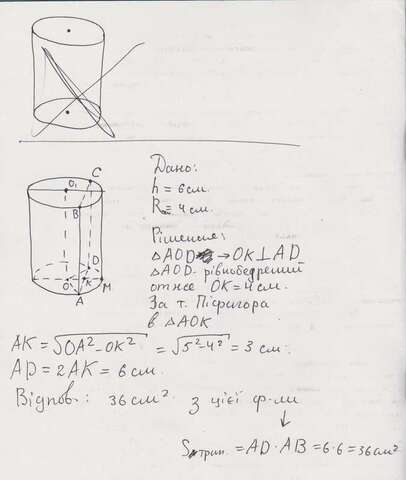 O₁
C
B
D
O
K
M
A
Дано:
h = 6 см.
R = 4 см.
Рішення:
△AOD → OK⊥AD
△AOD - рівнобедрений
отже OK = 4 см.
За т. Піфагора
в △AOK
AK = √OA²-OK² = √5²-4² = 3 см.
AD = 2AK = 6 см.
Відпов.: 36 см². З цієї ф-ли
↓
= AD · AB = 6·6 = 36 см²